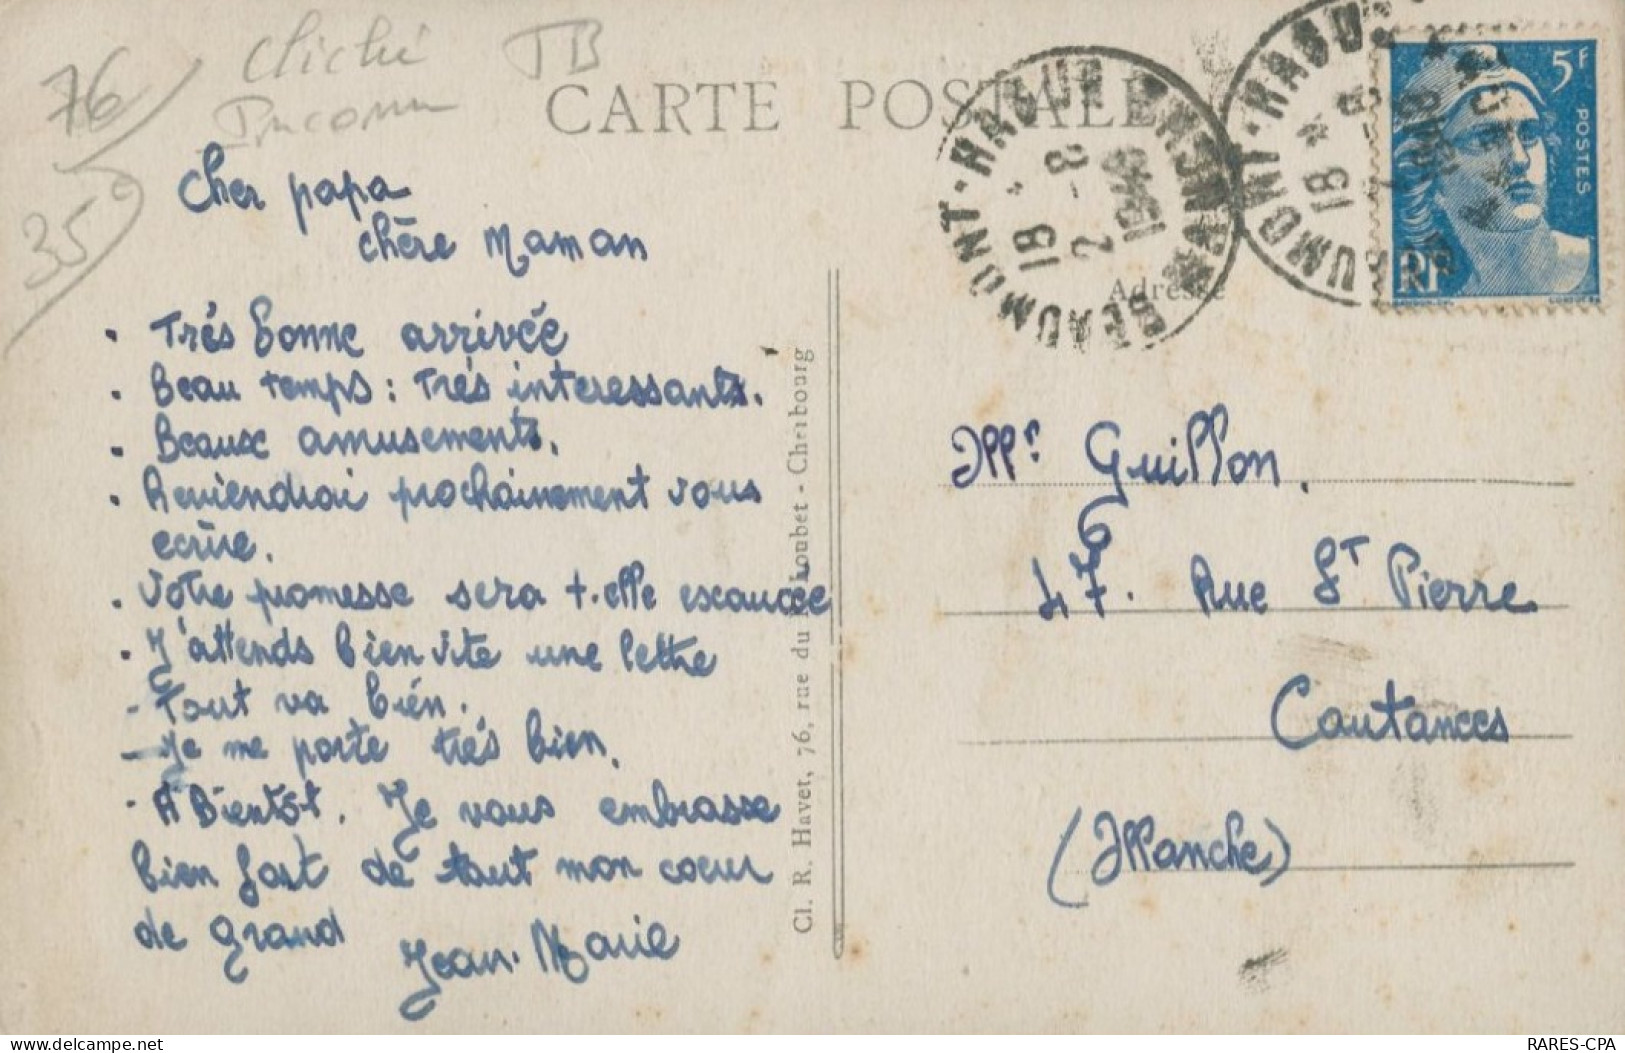 76
35
Cliché TB
Inconnu
CARTE POSTALE
BEAUMONT-HAGUE
MANCHE
18
2-8
1948
5F
POSTES
RF
Adresse
Cher papa
chère Maman
. Très bonne arrivée
. Beau temps : très interessants.
. Beaux amusements.
. Reviendrai prochainement vous
ecrire.
. Votre promesse sera t-elle exaucée
. J'attends bien vite une lettre
- Tout va bien.
- Je me porte très bien.
- A Bientôt. Je vous embrasse
bien fort de tout mon coeur
de grand
Jean-Marie
Cl. R. Havet, 76, rue du Roubet - Cherbourg
Mr Guillon.
47. Rue St Pierre
Coutances
(Manche)
RARES-CPA